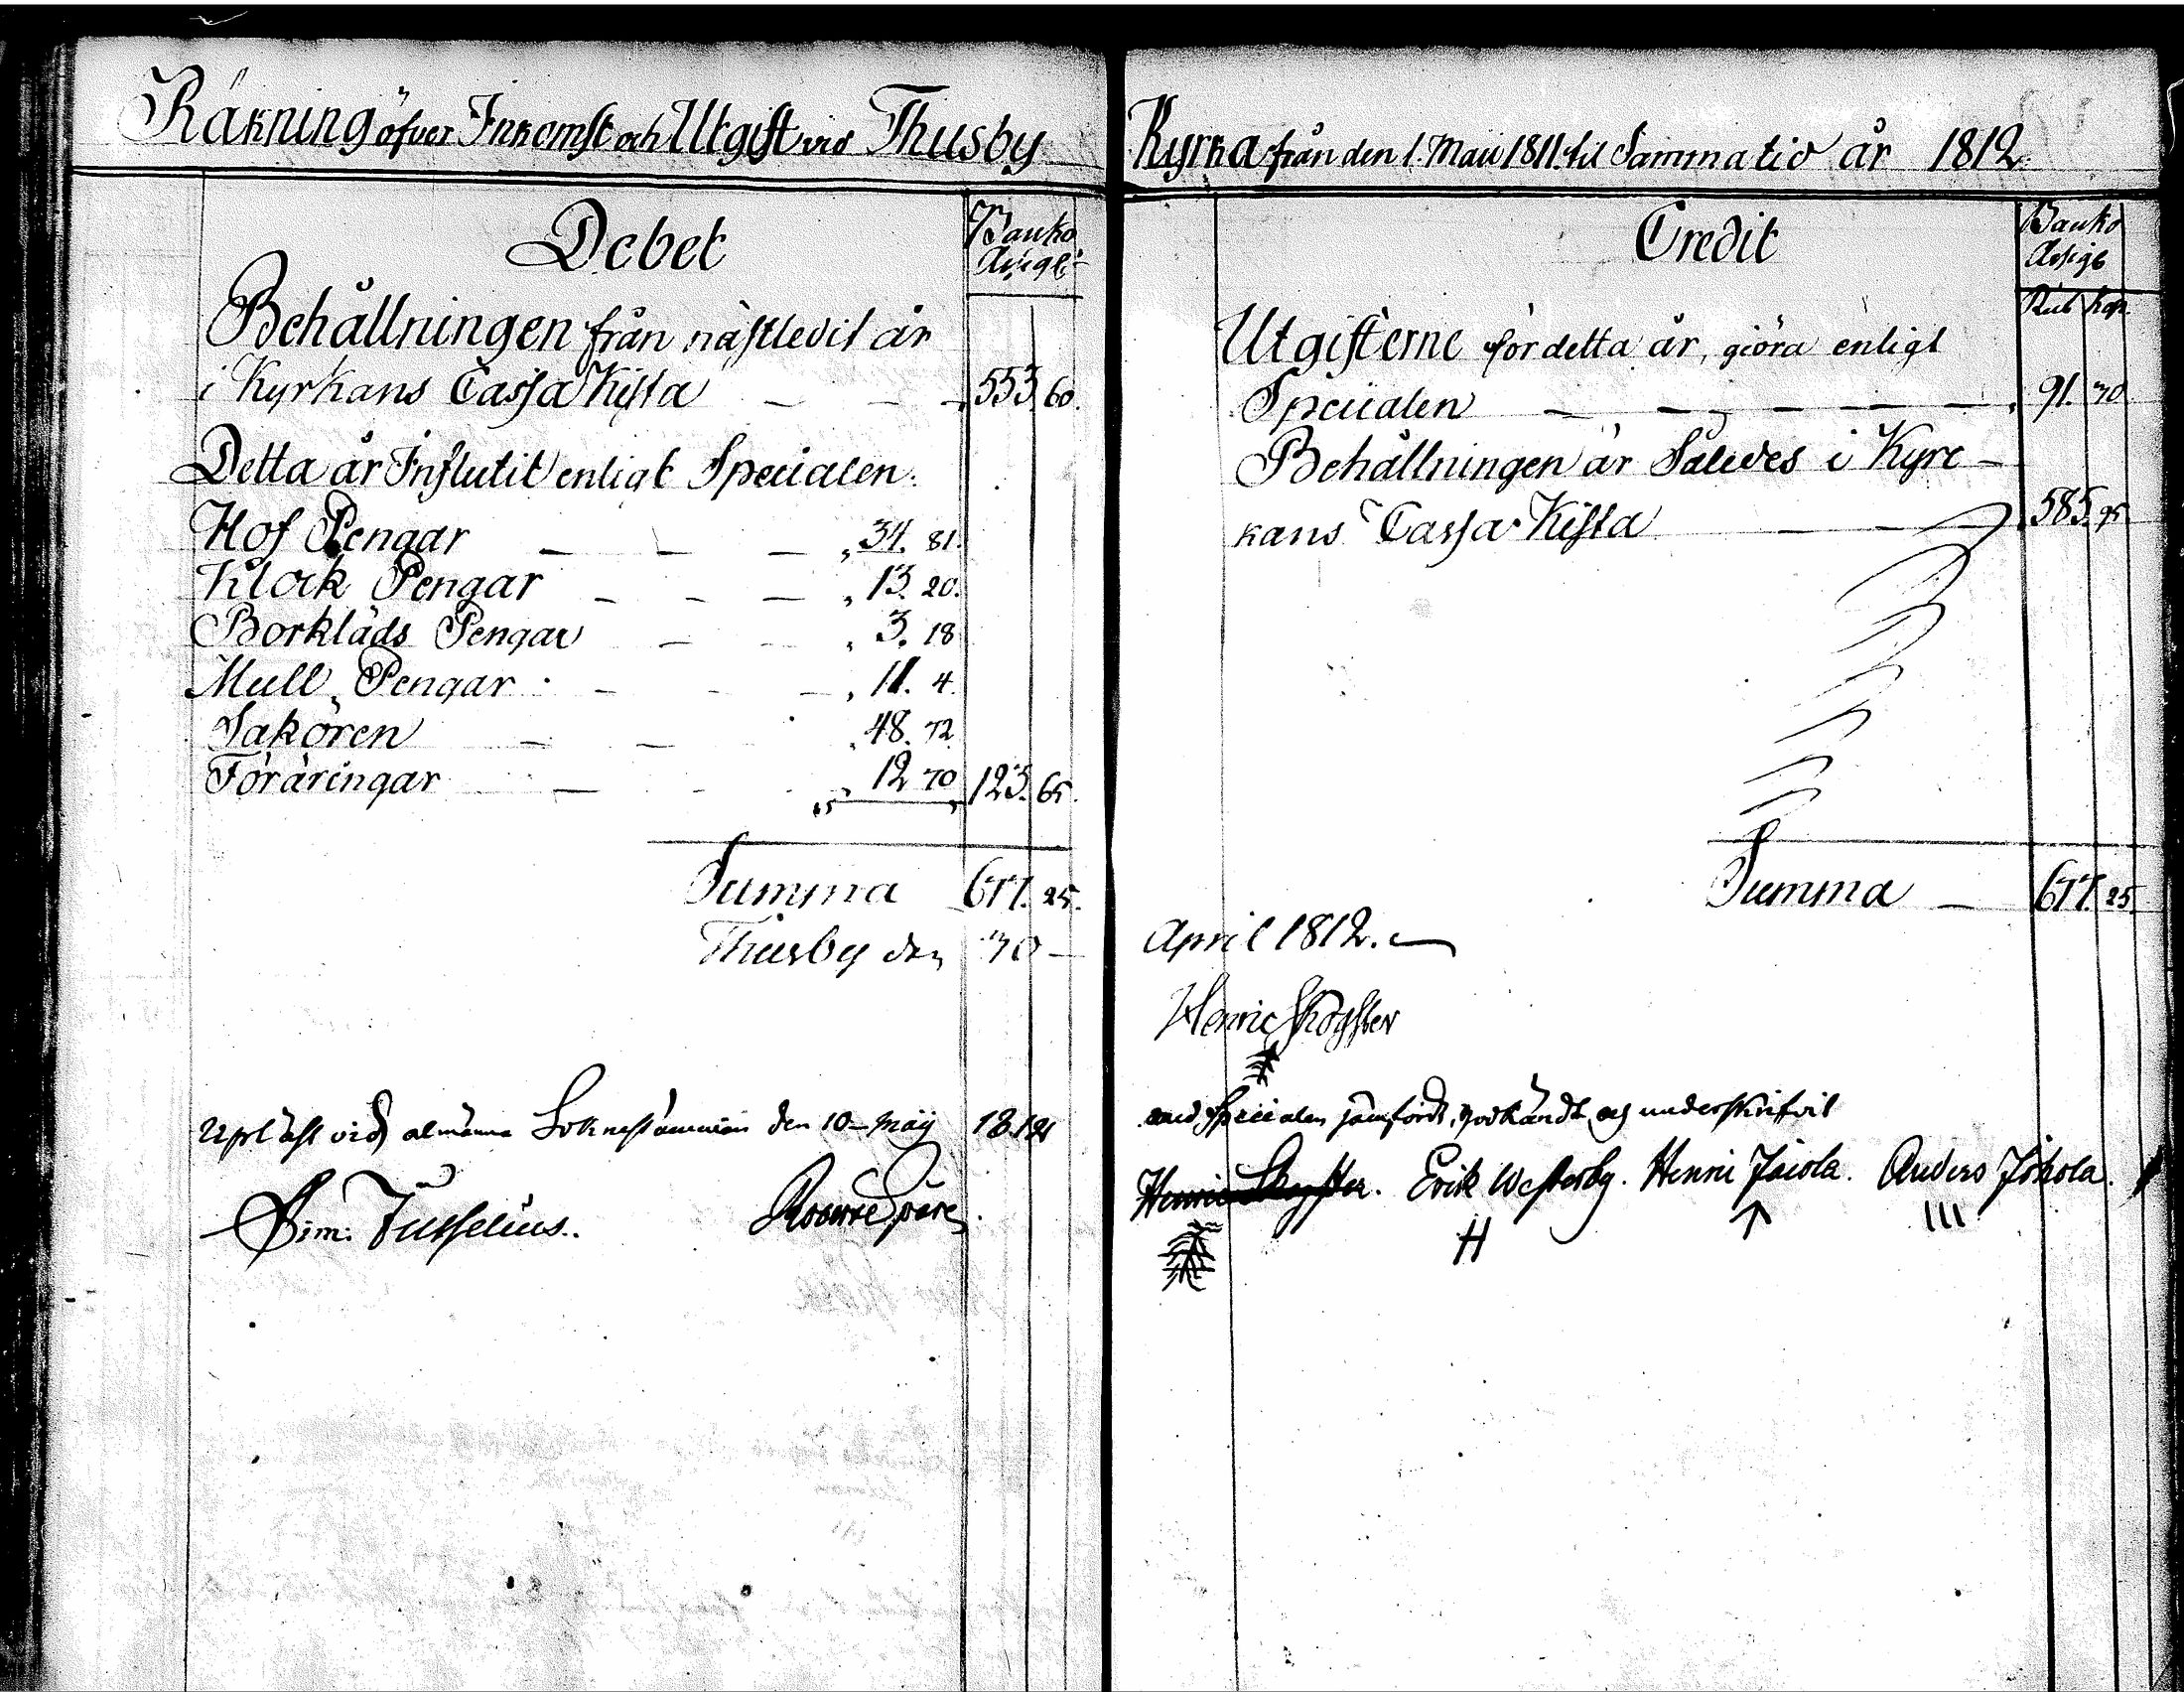 Räkning öfver Inkomst och Utgift vid Thusby
Debet
Banko
Assigt:
Behållningen från nästledit år
i Kyrkans Cassa Kista — — — 553. 60.
Detta år Influtit enligt Specialen.
Hof Pengar — — — 34. 81.
Klock Pengar — — — 13. 20.
Borkläds Pengar — — 3. 18
Mull Pengar — — — 11. 4.
Sakören — — 48. 72
Föräringar — — 12 70 123. 65.
Summa 677. 25.
Thusby den 30 —
Upläst vid almänna Soknestämman den 10 Maij 1812
Sim: Jusselius.
Kyrka från den 1. Maii 1811. til Samma tid år 1812.
Credit
Banko
Assigt
Rub kop.
Utgifterne för detta år, giöra enligt
Specialen — — — — — 91. 30
Behållningen är Således i Kyrc-
kans Cassa Kista — — — 585. 95
Summa — 677. 25.
April 1812. —
Henric Skogster
med Specialen jämfördt, godkändt och underskrifvit
Henric Skogster. Erik Westerby. Henric Jäiola. Anders Jokola.
H III